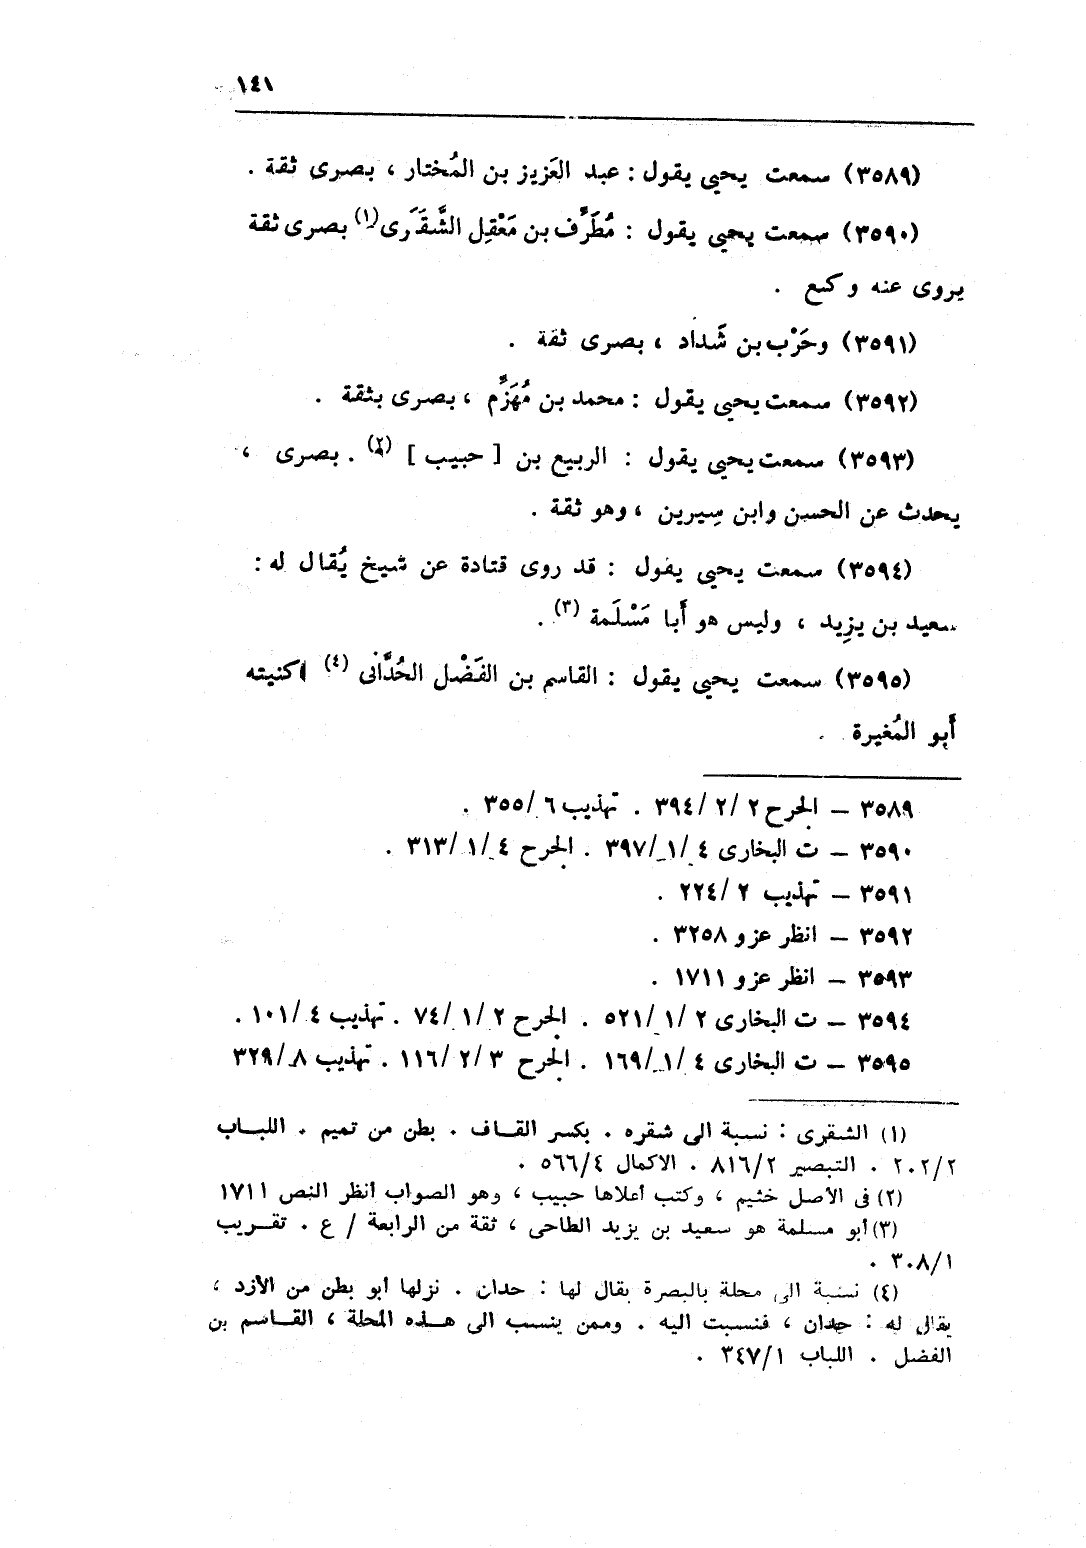 ١٤١
(٣٥٨٩) سمعت يحيى يقول : عبد العَزيز بن المُختار ، بصرى ثقة .
(٣٥٩٠) سمعت يحيى يقول : مُطَرِّف بن مَعْقِل الشَّقَرى(١) بصرى ثقة
يروى عنه وكيع .
(٣٥٩١) وحَرْب بن شَداد ، بصرى ثقة .
(٣٥٩٢) سمعت يحيى يقول : محمد بن مُهَزَّم ، بصرى بثقة .
(٣٥٩٣) سمعت يحيى يقول : الربيع بن [ حبيب ] (٢) . بصرى ،
يحدث عن الحسن وابن سِيرين ، وهو ثقة .
(٣٥٩٤) سمعت يحيى يقول : قد روى قتادة عن شيخ يُقال له :
سعيد بن يزِيد ، وليس هو أَبا مَسْلَمة (٣) .
(٣٥٩٥) سمعت يحيى يقول : القاسم بن الفَضْل الحُدَّانى (٤) اكنيته
أَبو المُغيرة .
٣٥٨٩ – الجرح ٢/٢/ ٣٩٤ . تهذيب ٦/ ٣٥٥ .
٣٥٩٠ – ت البخارى ٤/ ١/ ٣٩٧ . الجرح ٤/ ١/ ٣١٣ .
٣٥٩١ – تهذيب ٢/ ٢٢٤ .
٣٥٩٢ – انظر عزو ٣٢٥٨ .
٣٥٩٣ – انظر عزو ١٧١١ .
٣٥٩٤ – ت البخارى ٢/ ١/ ٥٢١ . الجرح ٢/ ١/ ٧٤ . تهذيب ٤/ ١٠١ .
٣٥٩٥ – ت البخارى ٤/ ١/ ١٦٩ . الجرح ٣/ ٢/ ١١٦ . تهذيب ٨/ ٣٢٩
(١) الشقرى : نسبة الى شقره . بكسر القاف . بطن من تميم . اللباب
٢٠٢/٢ . التبصير ٨١٦/٢ . الاكمال ٥٦٦/٤ .
(٢) فى الأصل خثيم ، وكتب أعلاها حبيب ، وهو الصواب انظر النص ١٧١١
(٣) أبو مسلمة هو سعيد بن يزيد الطاحى ، ثقة من الرابعة / ع . تقريب
٣٠٨/١ .
(٤) نسبة الى محلة بالبصرة يقال لها : حدان . نزلها أبو بطن من الأزد ،
يقال له : حدان ، فنسبت اليه . وممن ينسب الى هذه المحلة ، القاسم بن
الفضل . اللباب ٣٤٧/١ .